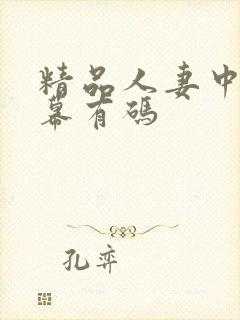 精品人妻中
幕有码
孔弈